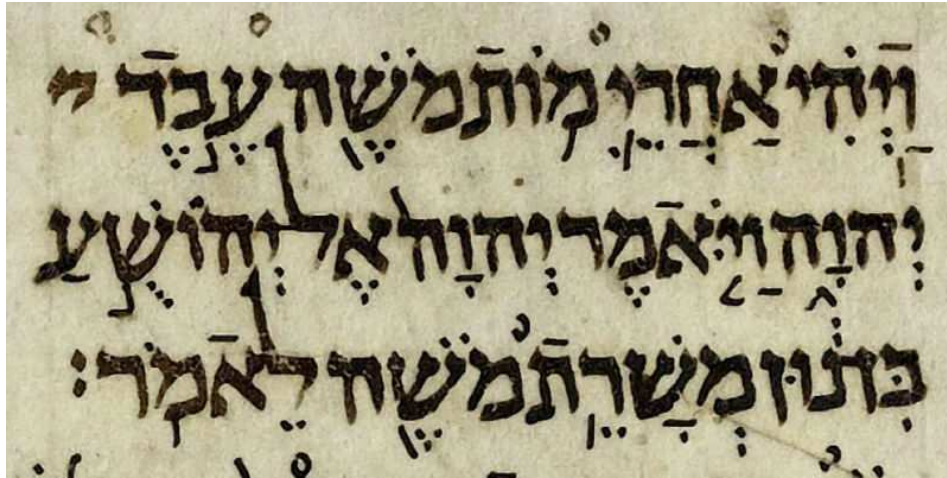 וַיְהִי אַחֲרֵי מוֹת מֹשֶׁה עֶבֶד י
יְהוָה וַיֹּאמֶר יְהוָה אֶל יְהוֹשֻׁעַ
בִּן נוּן מְשָׁרֵת מֹשֶׁה לֵאמֹר׃